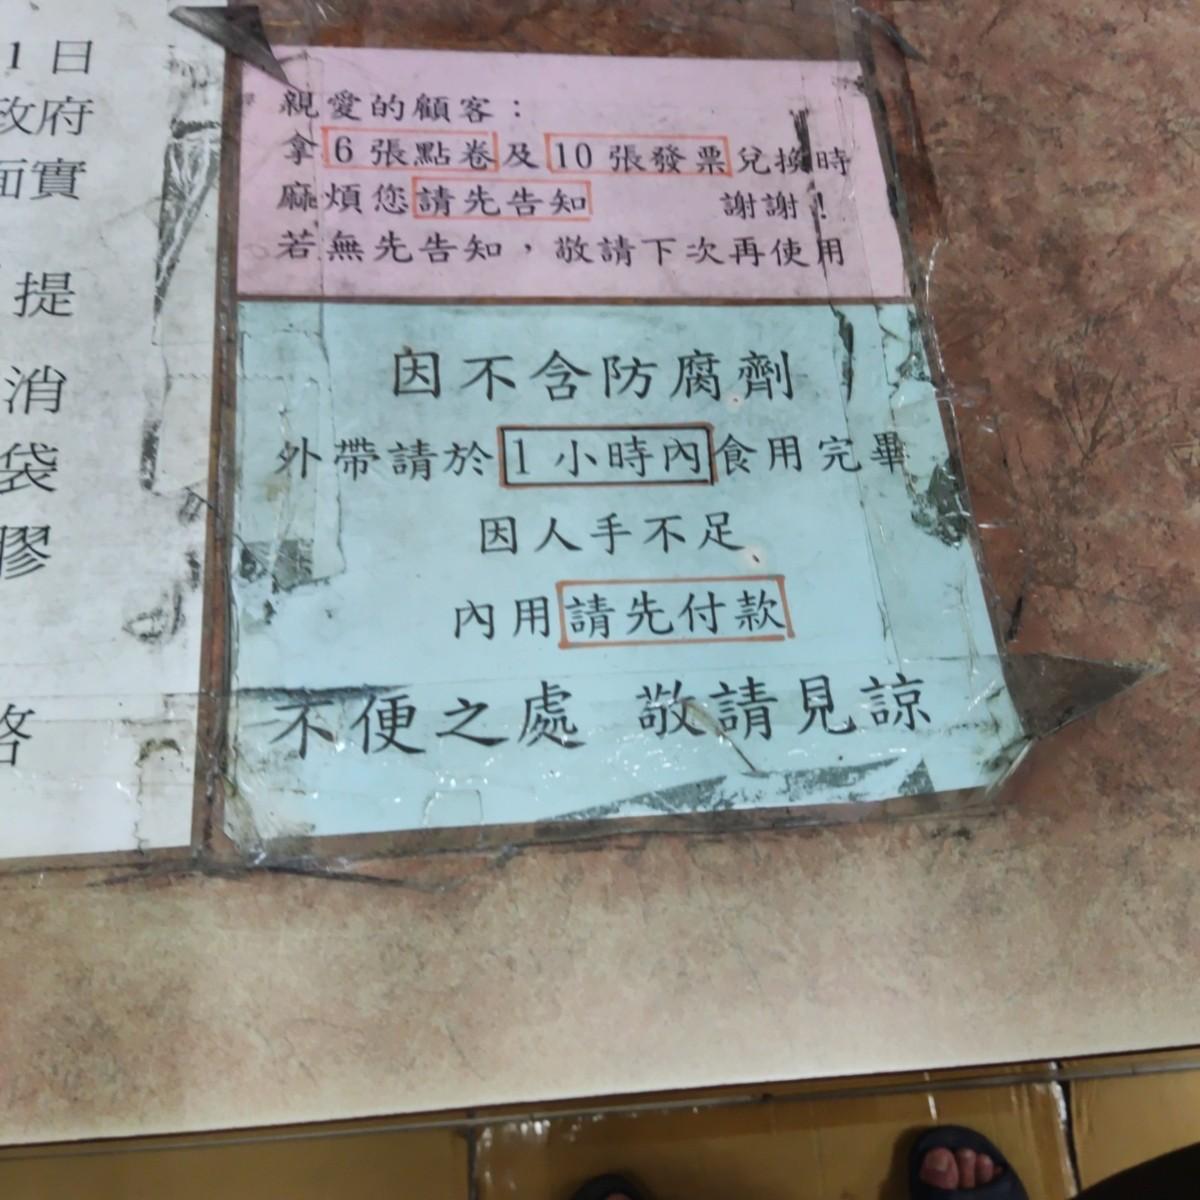 1日
政府
面實
提
消
袋
膠
親愛的顧客：
拿6張點卷及10張發票兌換時
麻煩您請先告知 謝謝！
若無先告知，敬請下次再使用
因不含防腐劑
外帶請於1小時內食用完畢
因人手不足、
內用請先付款
不便之處 敬請見諒